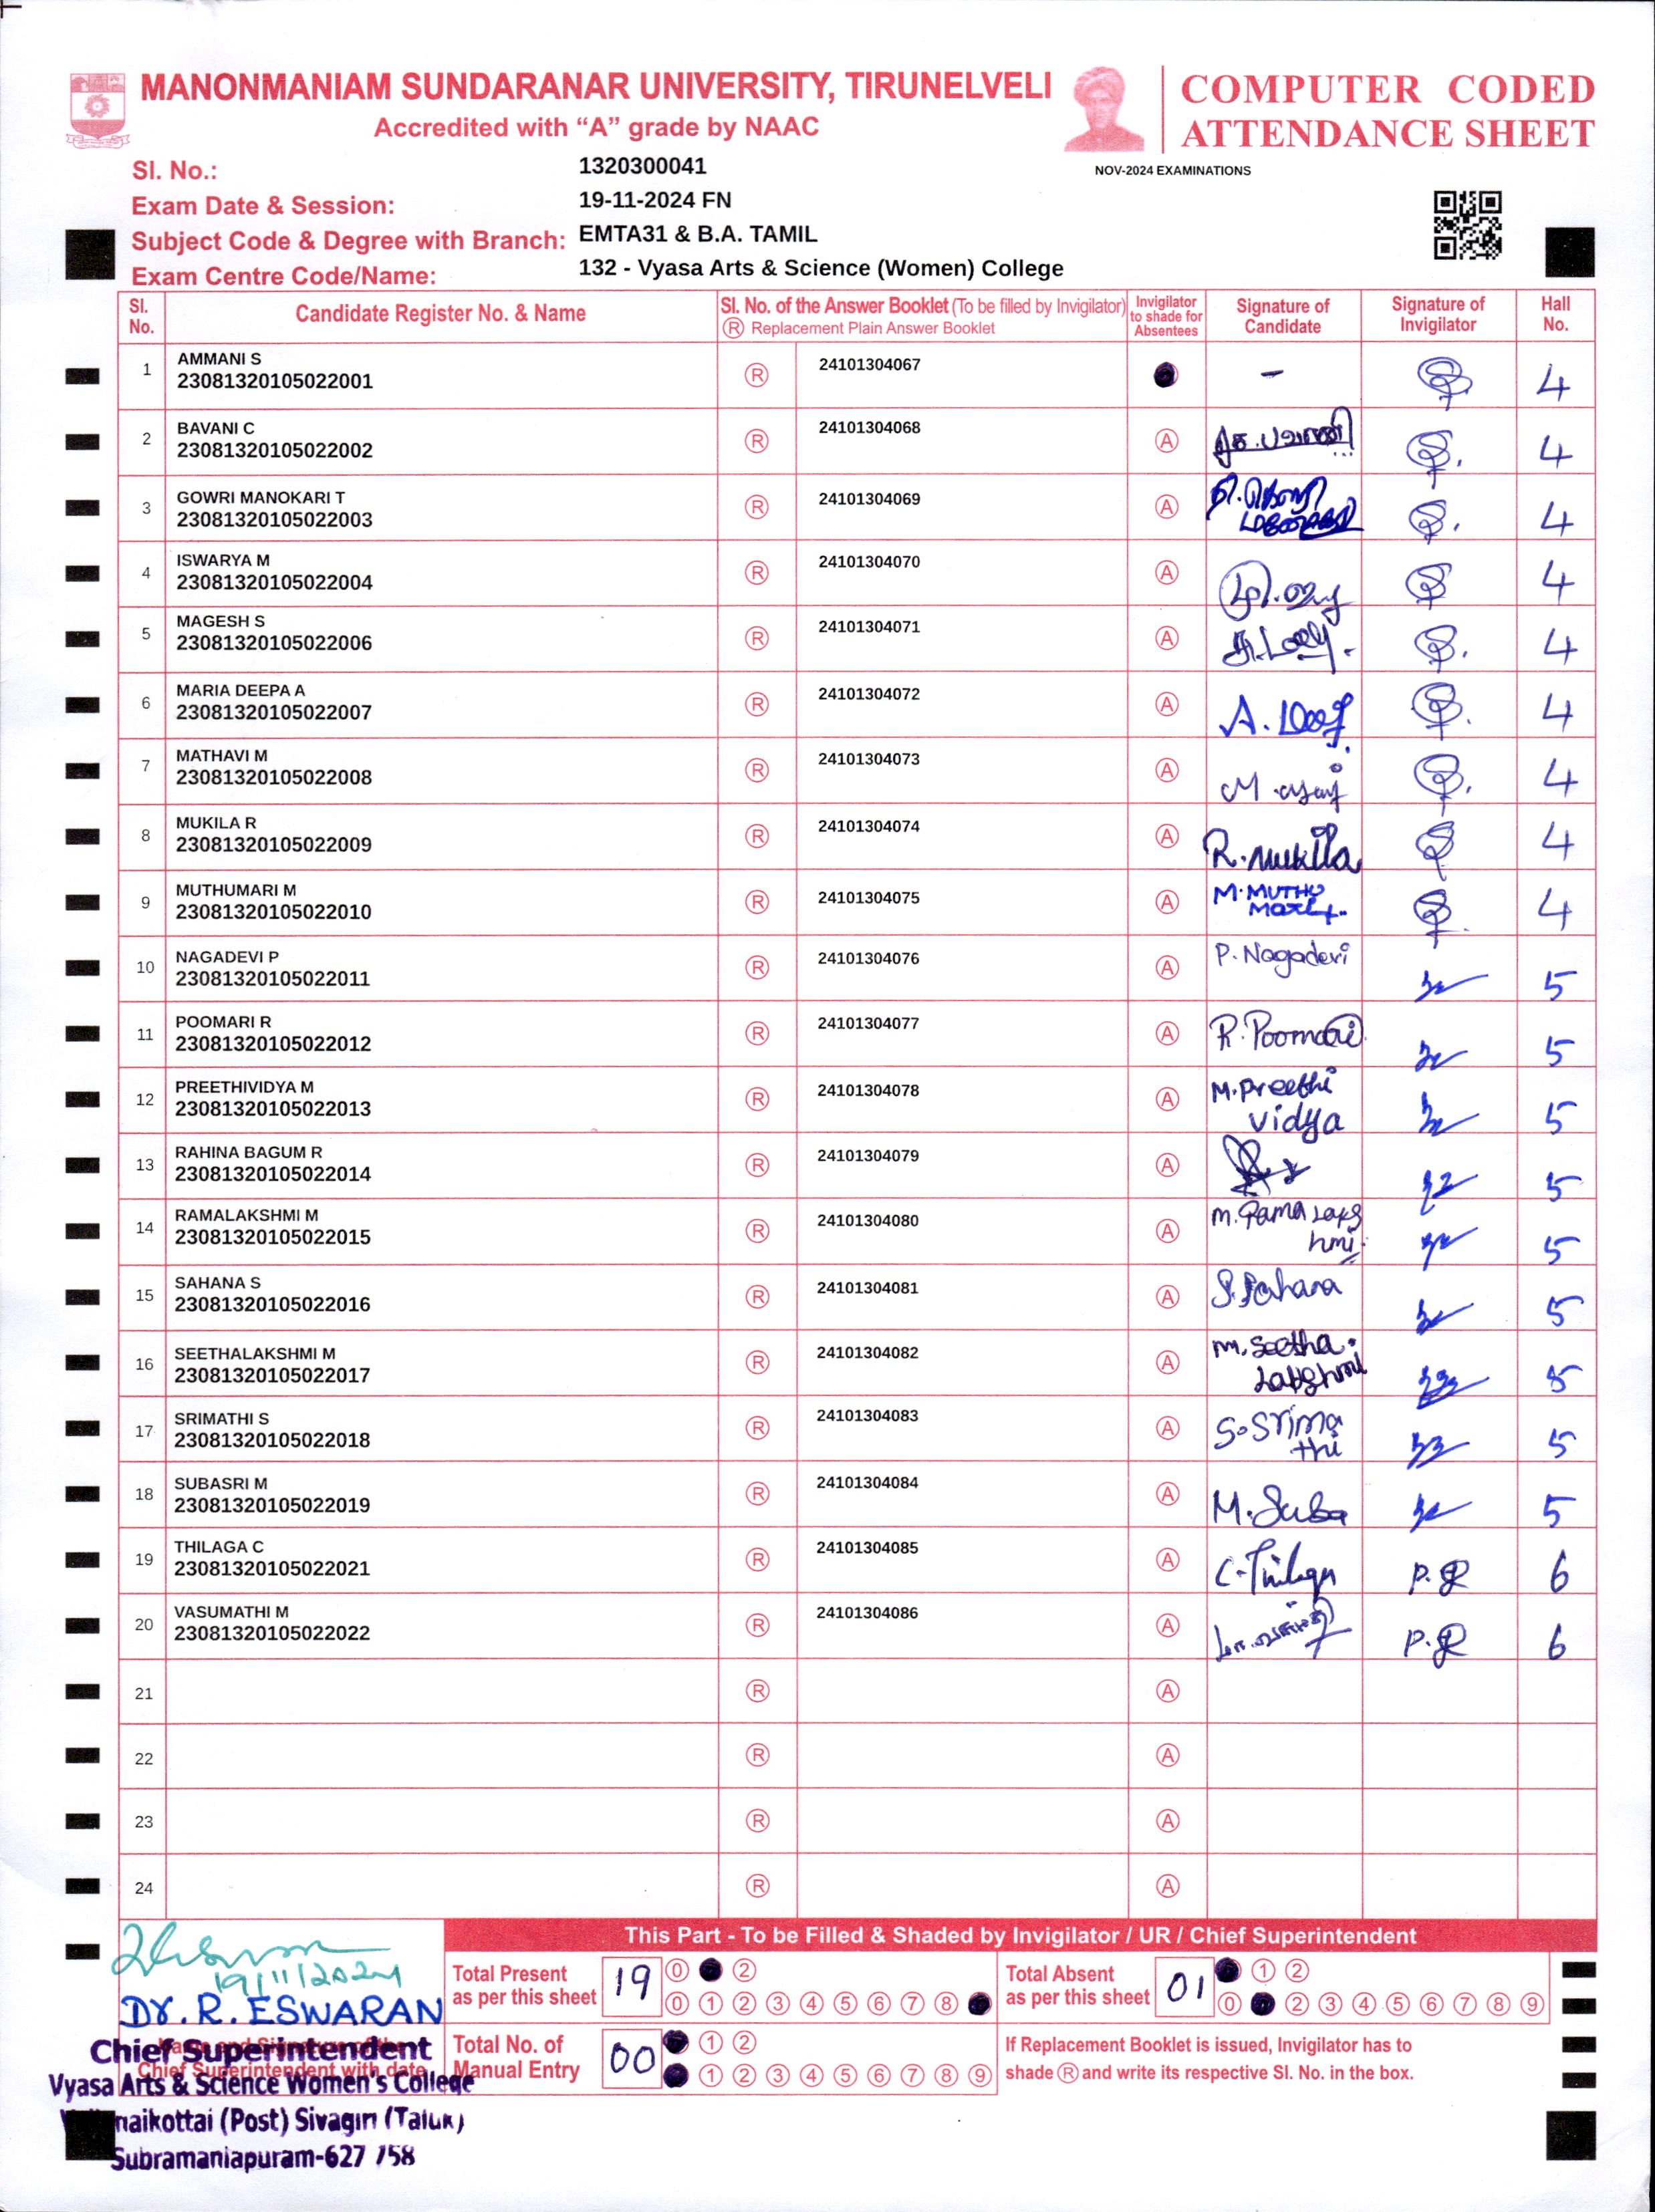 MANONMANIAM SUNDARANAR UNIVERSITY, TIRUNELVELI
Accredited with “A” grade by NAAC
COMPUTER CODED
ATTENDANCE SHEET
NOV-2024 EXAMINATIONS
Sl. No.: 1320300041
Exam Date & Session: 19-11-2024 FN
Subject Code & Degree with Branch: EMTA31 & B.A. TAMIL
Exam Centre Code/Name: 132 - Vyasa Arts & Science (Women) College
Sl. No. Candidate Register No. & Name Sl. No. of the Answer Booklet (To be filled by Invigilator) Ⓡ Replacement Plain Answer Booklet Invigilator to shade for Absentees Signature of Candidate Signature of Invigilator Hall No.
1 AMMANI S
23081320105022001 Ⓡ 24101304067 - 4
2 BAVANI C
23081320105022002 Ⓡ 24101304068 Ⓐ 4
3 GOWRI MANOKARI T
23081320105022003 Ⓡ 24101304069 Ⓐ 4
4 ISWARYA M
23081320105022004 Ⓡ 24101304070 Ⓐ 4
5 MAGESH S
23081320105022006 Ⓡ 24101304071 Ⓐ 4
6 MARIA DEEPA A
23081320105022007 Ⓡ 24101304072 Ⓐ 4
7 MATHAVI M
23081320105022008 Ⓡ 24101304073 Ⓐ 4
8 MUKILA R
23081320105022009 Ⓡ 24101304074 Ⓐ R. Mukila 4
9 MUTHUMARI M
23081320105022010 Ⓡ 24101304075 Ⓐ M. MUTHU 4
10 NAGADEVI P
23081320105022011 Ⓡ 24101304076 Ⓐ P. Nagadevi 5
11 POOMARI R
23081320105022012 Ⓡ 24101304077 Ⓐ R. Poomari 5
12 PREETHIVIDYA M
23081320105022013 Ⓡ 24101304078 Ⓐ M. Preethi vidya 5
13 RAHINA BAGUM R
23081320105022014 Ⓡ 24101304079 Ⓐ 5
14 RAMALAKSHMI M
23081320105022015 Ⓡ 24101304080 Ⓐ M. Rama Laks hmi 5
15 SAHANA S
23081320105022016 Ⓡ 24101304081 Ⓐ S. Sahana 5
16 SEETHALAKSHMI M
23081320105022017 Ⓡ 24101304082 Ⓐ M. Seetha Lakshmi 5
17 SRIMATHI S
23081320105022018 Ⓡ 24101304083 Ⓐ S. Srima thi 5
18 SUBASRI M
23081320105022019 Ⓡ 24101304084 Ⓐ M. Suba 5
19 THILAGA C
23081320105022021 Ⓡ 24101304085 Ⓐ C. Thilaga 6
20 VASUMATHI M
23081320105022022 Ⓡ 24101304086 Ⓐ 6
21 Ⓡ Ⓐ
22 Ⓡ Ⓐ
23 Ⓡ Ⓐ
24 Ⓡ Ⓐ
This Part - To be Filled & Shaded by Invigilator / UR / Chief Superintendent
Total Present as per this sheet 19 ⓪ ②
⓪ ① ② ③ ④ ⑤ ⑥ ⑦ ⑧
Total Absent as per this sheet 01 ① ②
⓪ ② ③ ④ ⑤ ⑥ ⑦ ⑧ ⑨
Total No. of Manual Entry 00 ① ②
① ② ③ ④ ⑤ ⑥ ⑦ ⑧ ⑨
If Replacement Booklet is issued, Invigilator has to
shade Ⓡ and write its respective Sl. No. in the box.
19/11/2024
Dr. R. ESWARAN
Chief Superintendent
Chief Superintendent with date
Vyasa Arts & Science Women's College
(Post) Sivagiri (Taluk)
Subramaniapuram-627 758